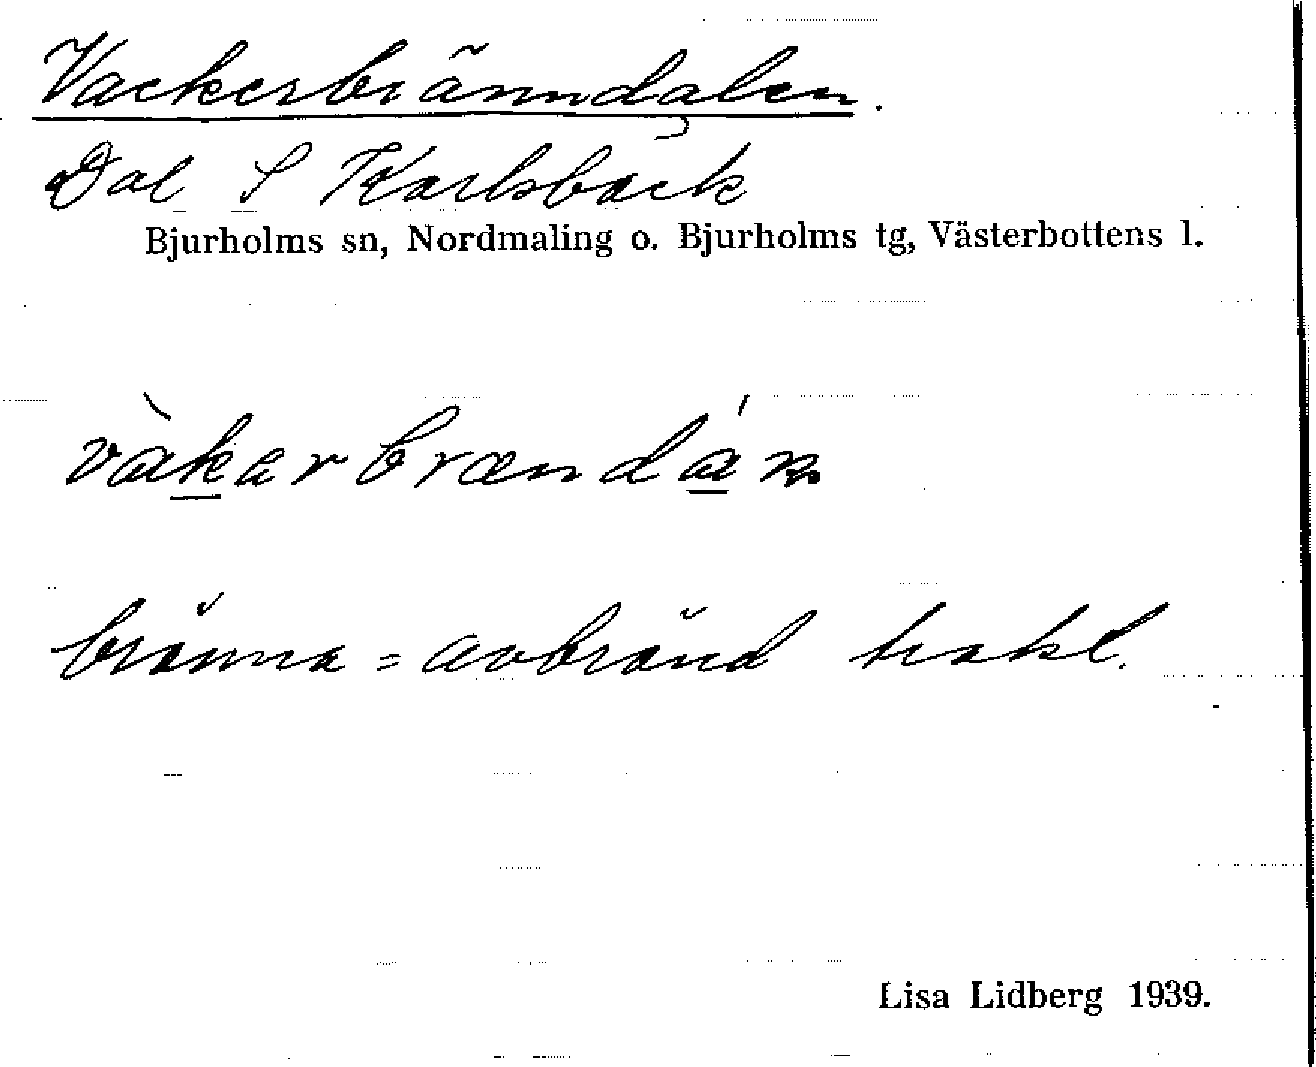 Vackerbränndalen.
Dal S Karlsbäck
Bjurholms sn, Nordmaling o. Bjurholms tg, Västerbottens l.
vàkarbrændán
bränna = avbränd trakt.
Lisa Lidberg 1939.